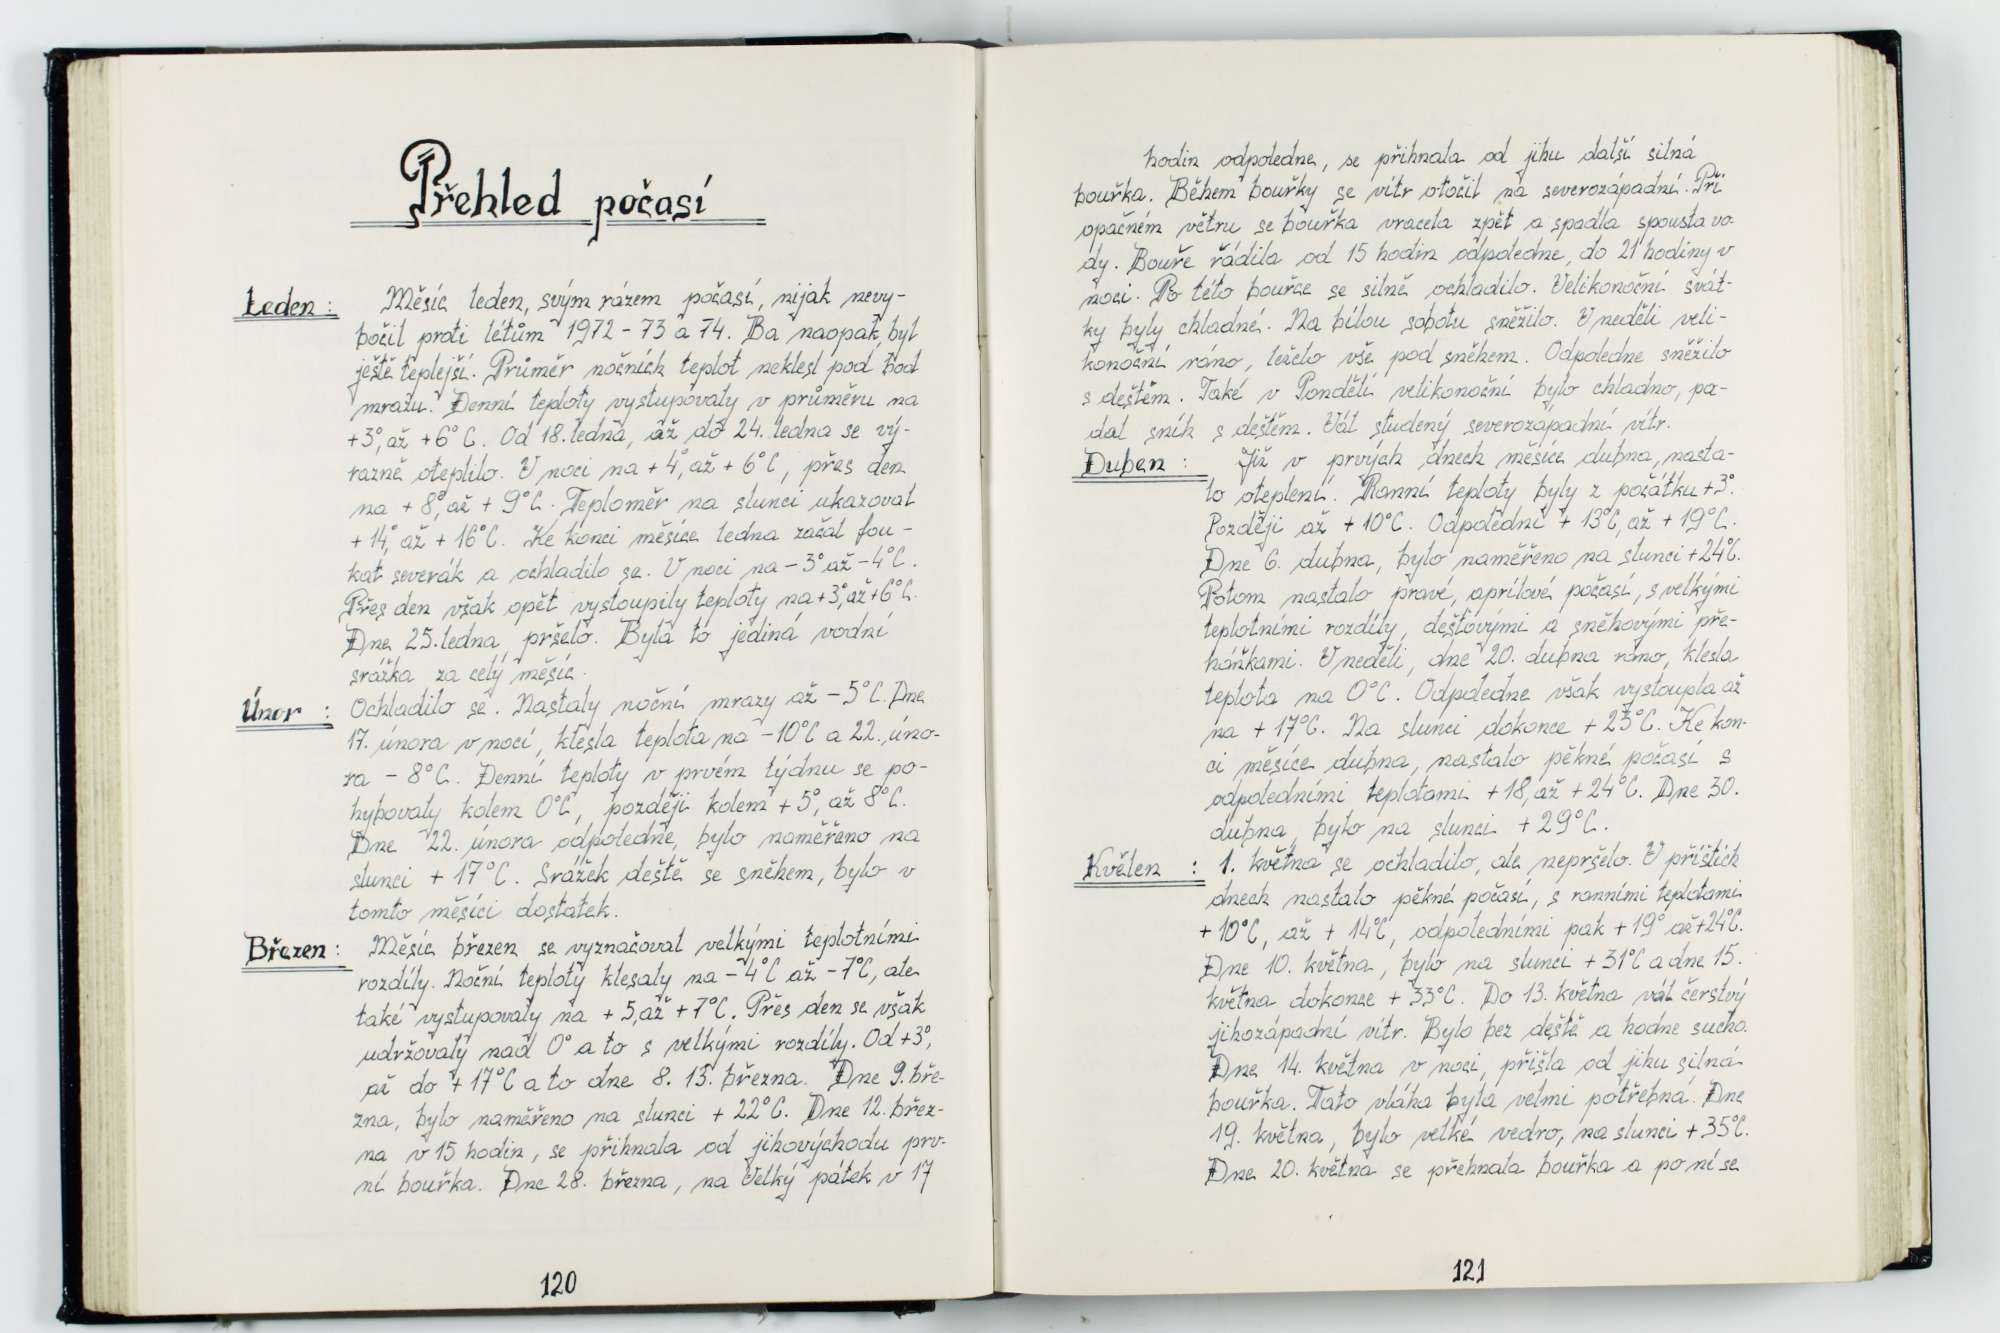 Přehled počasí
Leden: Měsíc leden, svým rázem počasí, nijak nevy-
bočil proti létům 1972-73 a 74. Ba naopak, byl
ještě teplejší. Průměr nočních teplot neklesl pod bod
mrazu. Denní teploty vystupovaly v průměru na
+3°, až +6°C. Od 18. ledna, až do 24. ledna se vý-
razně oteplilo. V noci na +4°, až +6°C, přes den
na +8°, až +9°C. Teploměr na slunci ukazoval
+14°, až +16°C. Ke konci měsíce ledna začal fou-
kat severák a ochladilo se. V noci na -3° až -4°C.
Přes den však opět vystoupily teploty na +3°, až +6°C.
Dne 25. ledna, pršelo. Byla to jediná vodní
srážka za celý měsíc.
Únor: Ochladilo se. Nastaly noční mrazy až -5°C. Dne
17. února v noci, klesla teplota na -10°C a 22. úno-
ra -8°C. Denní teploty v prvém týdnu se po-
hybovaly kolem 0°C, později kolem +5°, až 8°C.
Dne 22. února odpoledne, bylo naměřeno na
slunci +17°C. Srážek deště se sněhem, bylo v
tomto měsíci dostatek.
Březen: Měsíc březen se vyznačoval velkými teplotními
rozdíly. Noční teploty klesaly na -4°C až -7°C, ale
také vystupovaly na +5, až +7°C. Přes den se však
udržovaly nad 0° a to s velkými rozdíly. Od +3°,
až do +17°C a to dne 8. 13. března. Dne 9. bře-
zna, bylo naměřeno na slunci +22°C. Dne 12. břez-
na v 15 hodin, se přihnala od jihovýchodu prv-
ní bouřka. Dne 28. března, na Velký pátek v 17
120
hodin odpoledne, se přihnala od jihu další silná
bouřka. Během bouřky se vítr otočil na severozápadní. Při
opačném větru se bouřka vracela zpět a spadla spousta vo-
dy. Bouře řádila od 15 hodin odpoledne, do 21 hodiny v
noci. Po této bouřce se silně ochladilo. Velikonoční svát-
ky byly chladné. Na bílou sobotu sněžilo. V neděli veli-
konoční ráno, leželo vše pod sněhem. Odpoledne sněžilo
s deštěm. Také v Pondělí velikonoční bylo chladno, pa-
dal sníh s deštěm. Vál studený severozápadní vítr.
Duben: Již v prvých dnech měsíce dubna, nasta-
lo oteplení. Ranní teploty byly z počátku +3°.
Později až +10°C. Odpolední +13°C, až +19°C.
Dne 6. dubna, bylo naměřeno na slunci +24°C.
Potom nastalo pravé, aprílové počasí, s velkými
teplotními rozdíly, dešťovými a sněhovými pře-
háňkami. V neděli, dne 20. dubna ráno, klesla
teplota na 0°C. Odpoledne však vystoupla až
na +17°C. Na slunci dokonce +23°C. Ke kon-
ci měsíce dubna, nastalo pěkné počasí s
odpoledními teplotami +18, až +24°C. Dne 30.
dubna, bylo na slunci +29°C.
Květen: 1. května se ochladilo, ale nepršelo. V příštích
dnech nastalo pěkné počasí, s ranními teplotami
+10°C, až +14°C, odpoledními pak +19° až +24°C.
Dne 10. května, bylo na slunci +31°C a dne 15.
května dokonce +33°C. Do 13. května vál čerstvý
jihozápadní vítr. Bylo bez deště a hodne sucho.
Dne 14. května v noci, přišla od jihu silná
bouřka. Tato vláha byla velmi potřebná. Dne
19. května, bylo velké vedro, na slunci +35°C.
Dne 20. května se přehnala bouřka a po ní se
121